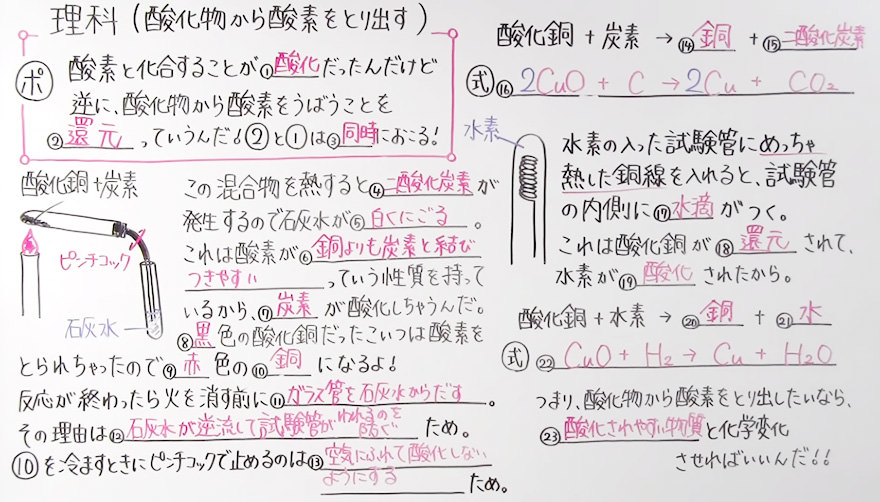 理科(酸化物から酸素をとり出す)
ポ
酸素と化合することが①酸化だったんだけど
逆に、酸化物から酸素をうばうことを
②還元っていうんだ!②と①は③同時におこる!
酸化銅+炭素
ピンチコック
石灰水
この混合物を熱すると④二酸化炭素が
発生するので石灰水が⑤白くにごる。
これは酸素が⑥銅よりも炭素と結び
つきやすいっていう性質を持って
いるから、⑦炭素が酸化しちゃうんだ。
⑧黒色の酸化銅だったこいつは酸素を
とられちゃったので⑨赤色の⑩銅になるよ!
反応が終わったら火を消す前に⑪ガラス管を石灰水からだす。
その理由は⑫石灰水が逆流して試験管がわれるのを防ぐため。
⑩を冷ますときにピンチコックで止めるのは⑬空気にふれて酸化しない
ようにするため。
酸化銅+炭素→⑭銅+⑮二酸化炭素
式⑯2CuO+C→2Cu+CO₂
水素
水素の入った試験管にめっちゃ
熱した銅線を入れると、試験管
の内側に⑰水滴がつく。
これは酸化銅が⑱還元されて、
水素が⑲酸化されたから。
酸化銅+水素→⑳銅+㉑水
式㉒CuO+H₂→Cu+H₂O
つまり、酸化物から酸素をとり出したいなら、
㉓酸化されやすい物質と化学変化
させればいいんだ!!